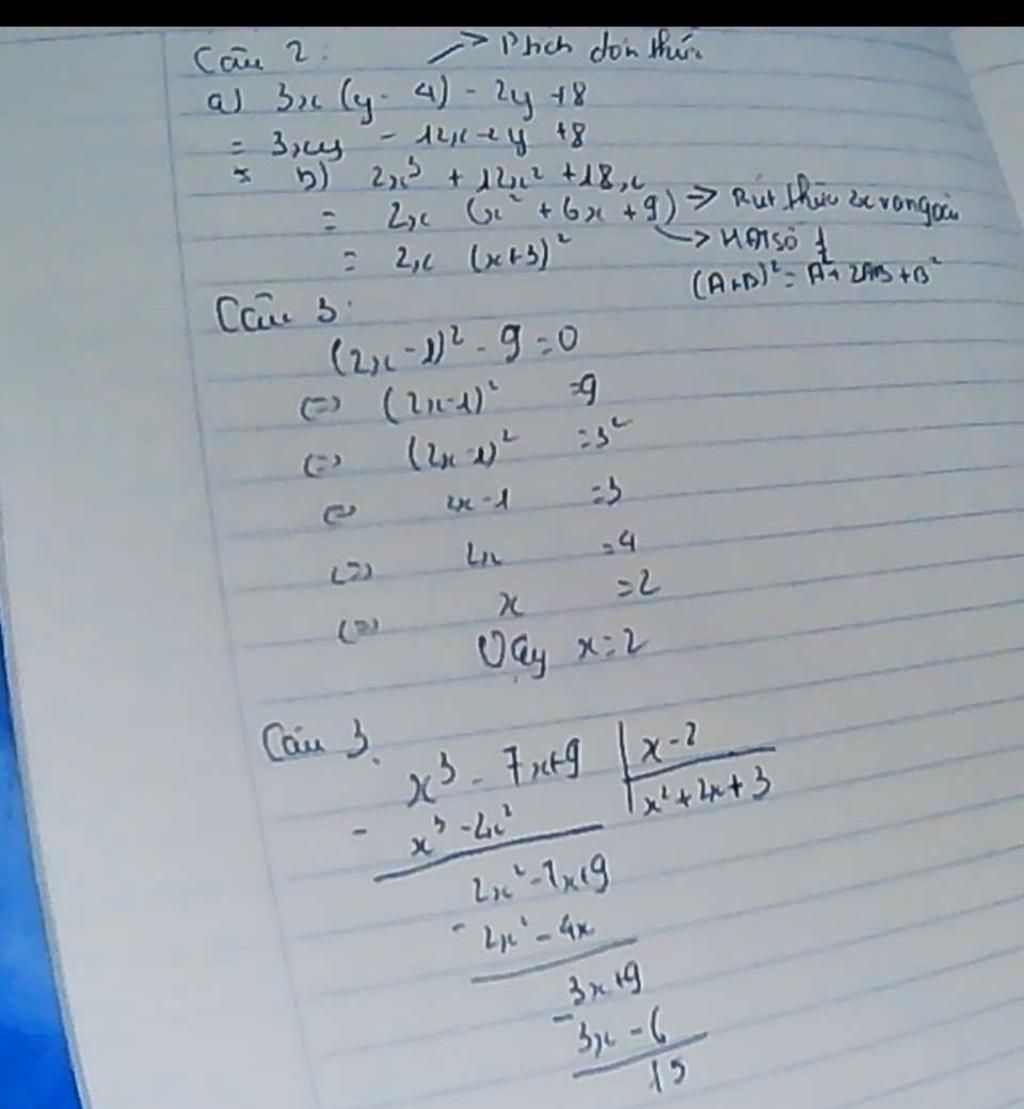 Câu 2: → Ptích đơn thức
a) 3x (y - 4) - 2y +8
= 3xy - 12x - 2y +8
= b) 2x³ + 12x² + 18x
= 2x (x² + 6x + 9) → Rút thức 2x ra ngoài
= 2x (x+3)² → HĐT số 1
(A+B)² = A² + 2AB + B²
Câu 3:
(2x - 1)² - 9 = 0
(=) (2x-1)² = 9
(=) (2x-1)² = 3²
(=) 2x - 1 = 3
(=) 2x = 4
(=) x = 2
Vậy x = 2
Câu 3.
x³ - 7x+9 | x - 2
- x³ - 2x² | x² + 2x + 3
2x² - 7x+9
- 2x² - 4x
3x+9
- 3x - 6
15